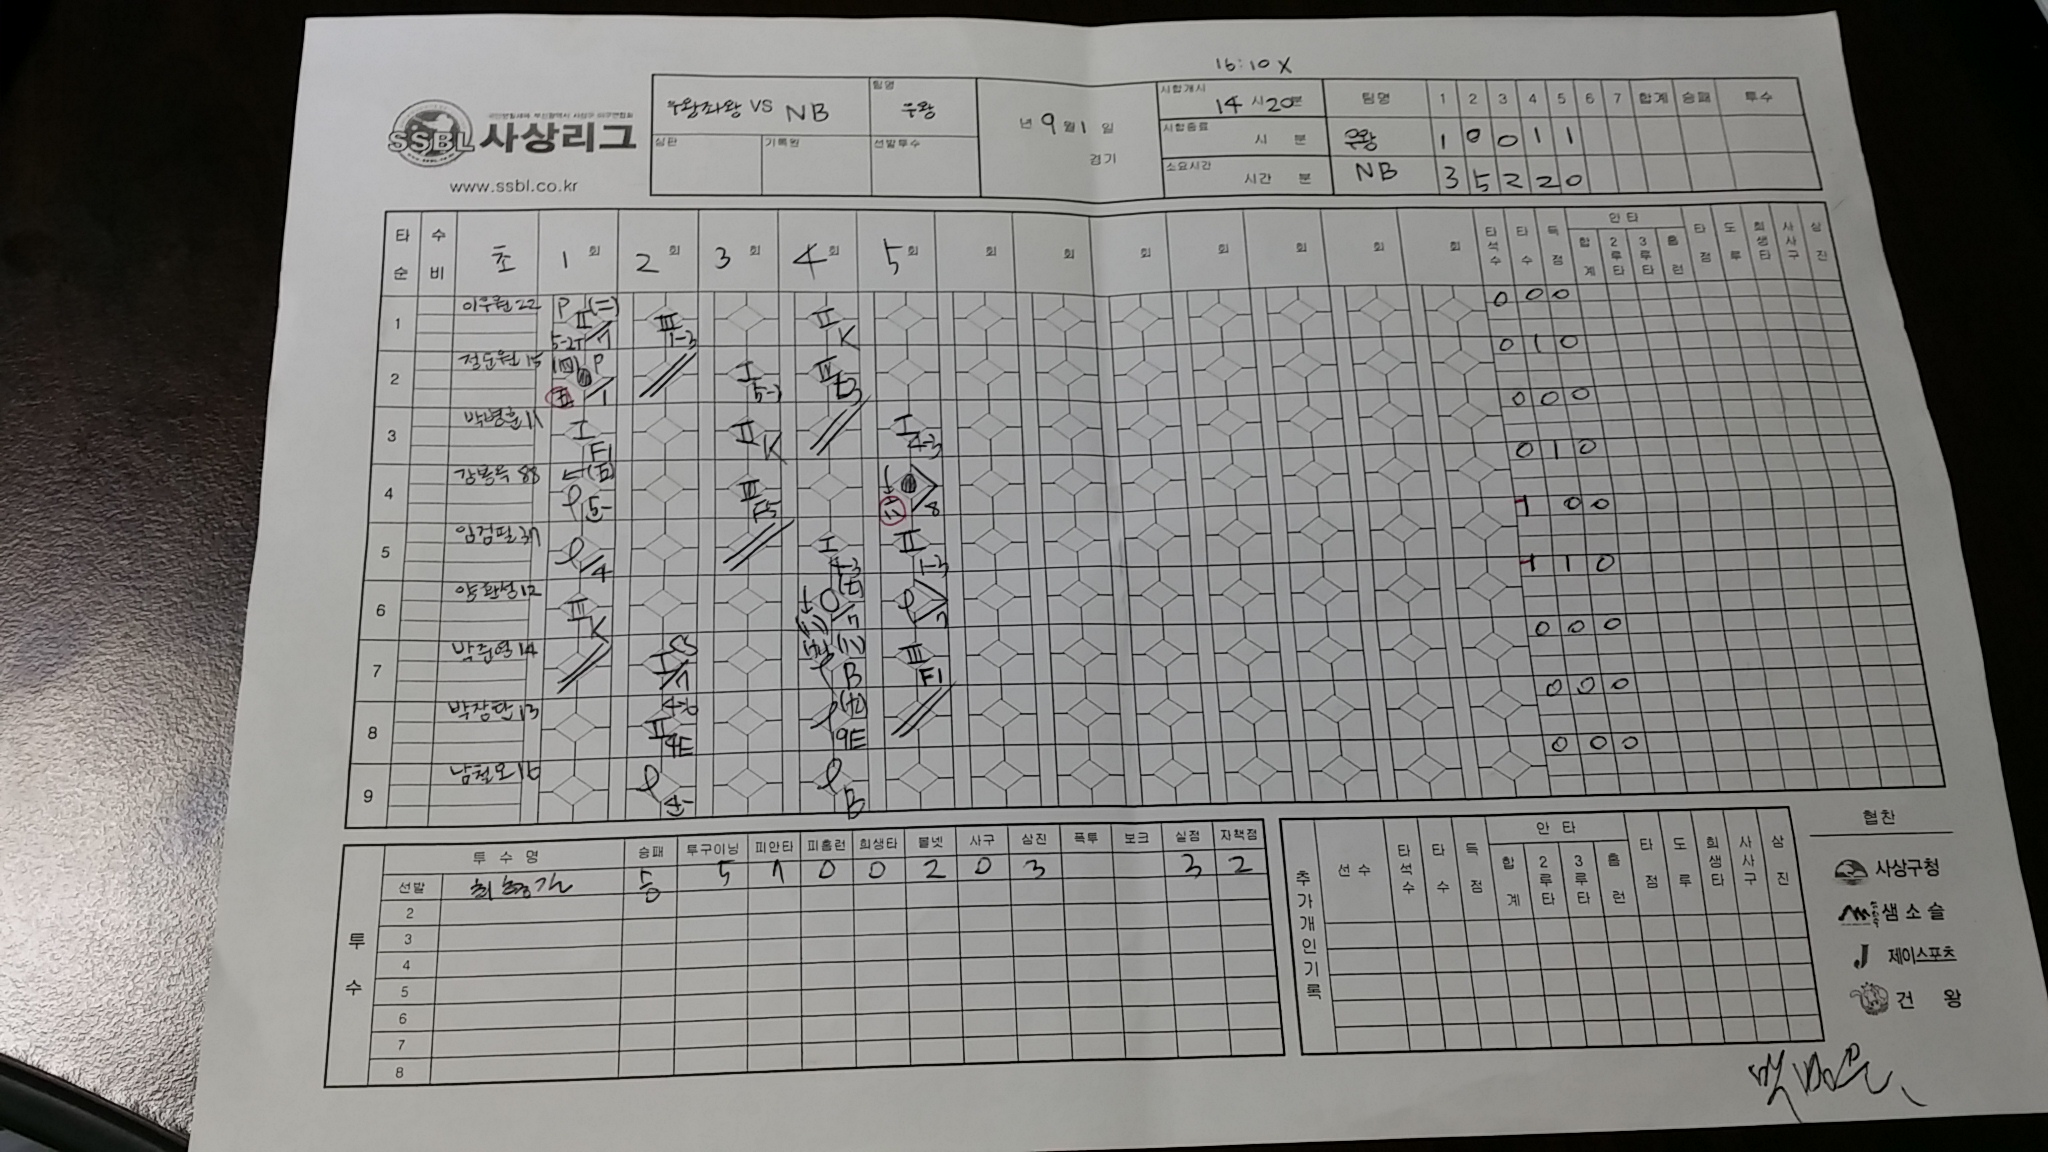 16:10 X
SSBL 사상리그
www.ssbl.co.kr
우왕좌왕 VS NB
팀명
우왕
심판
기록원
선발투수
년 9월 1일
경기
시합개시 14시 20분
시합종료 시 분
소요시간 시간 분
팀명 1 2 3 4 5 6 7 합계 승패 투수
우왕 1 0 0 1 1
NB 3 5 2 2 0
타순 수비 초 1회 2회 3회 4회 5회 회 회 회 회 회 회 회 타석수 타수 득점 안타 합계 2루타 3루타 홈런 타점 도루 희생타 사사구 삼진
1 이우원 22 P (二) II 5-2T 7 III 1-3 II K 0 0 0
2 15 (四) P 五 1 I 5-3 III 0 1 0
3 11 I F1 II K I 4-3 0 0 0
4 강봉욱 88 (五) 5- III F5 8 0 1 0
5 37 4 I 4-3 II 1-3 1 0 0
6 12 III K (七) 7 7 1 1 0
7 14 I 7 B III F1 0 0 0
8 박장한 13 II 9E (七) 9E 0 0 0
9 남철오 16 4- B 0 0 0
투수
투수명 승패 투구이닝 피안타 피홈런 희생타 볼넷 사구 삼진 폭투 보크 실점 자책점
선발 승 5 7 0 0 2 0 3 3 2
2
3
4
5
6
7
8
추가개인기록
선수 타석수 타수 득점 안타 합계 2루타 3루타 홈런 타점 도루 희생타 사사구 삼진
협찬
사상구청
샘소슬
제이스포츠
건왕